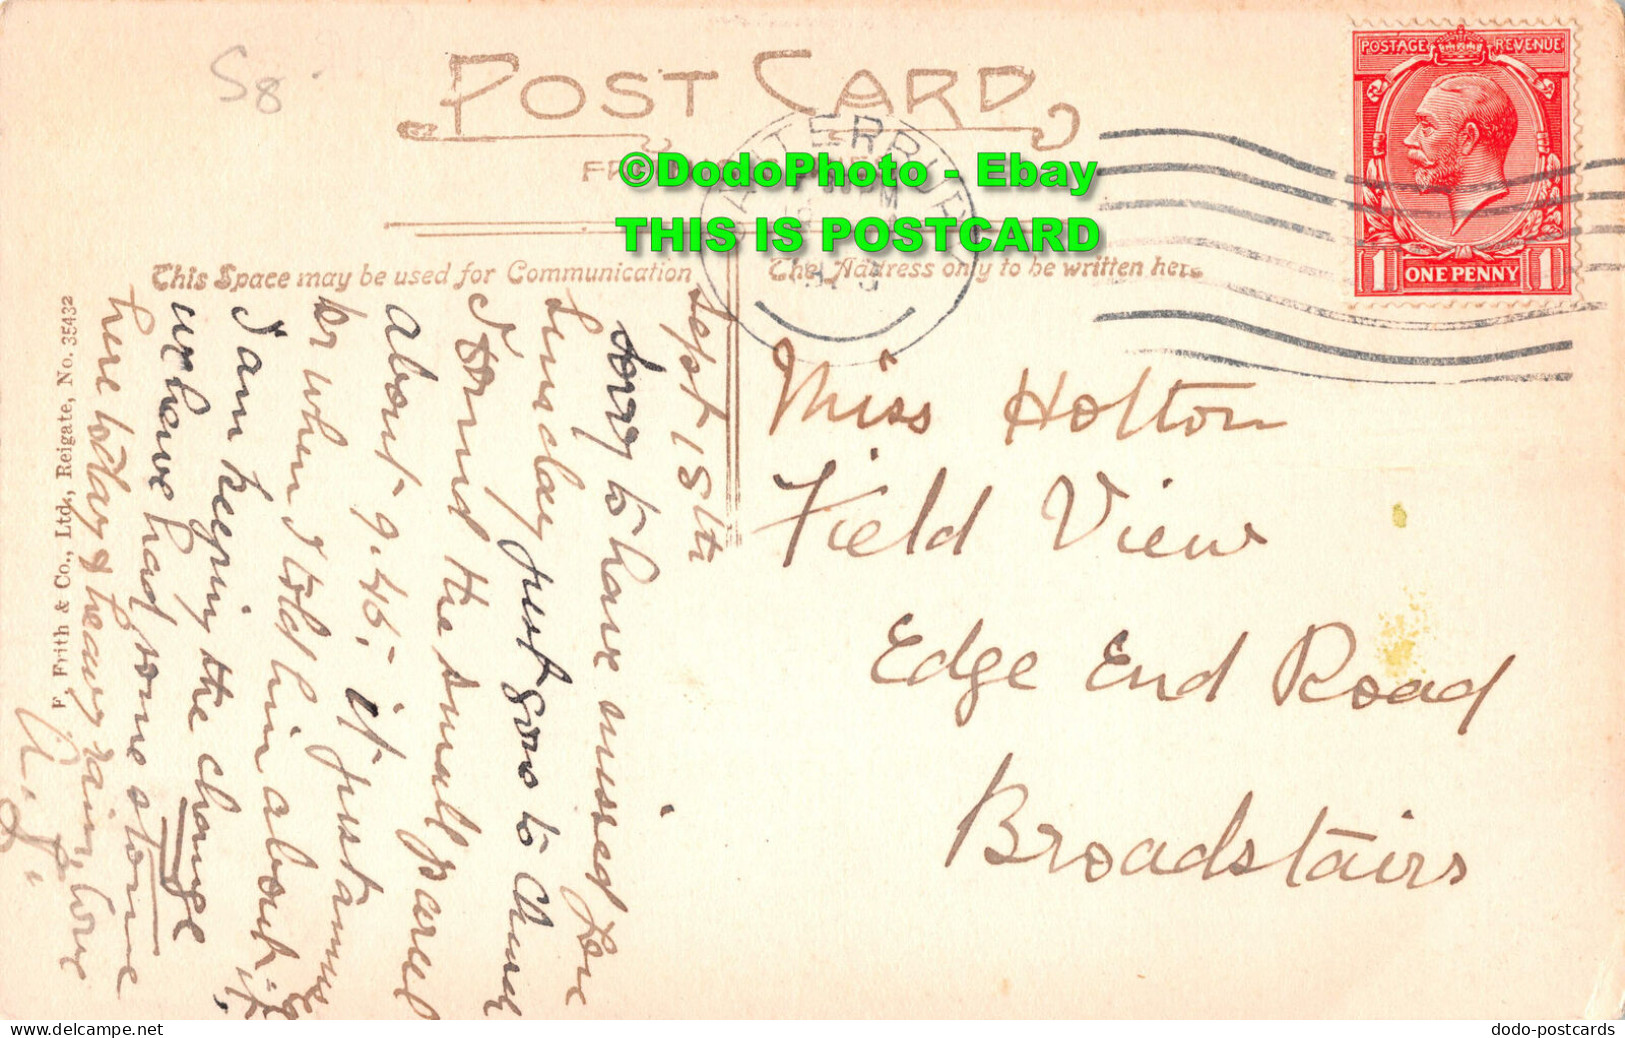 58
POST CARD
©DodoPhoto - Ebay
THIS IS POSTCARD
POSTAGE REVENUE
1 ONE PENNY 1
This Space may be used for Communication
The Address only to be written here
F. Frith & Co., Ltd., Reigate, No. 35432
Sept 18th
Sorry to have missed
Sunday just gone to Church
I found the small parcel
about 9.45. it just amuses
when I told him about it
I am keeping the change
we have had some stone
here today & heavy rain, love
Miss Holton
Field View
Edge End Road
Broadstairs
dodo-postcards.delcampe.net
dodo-postcards